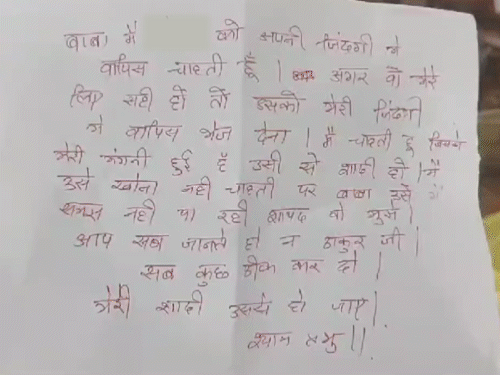 बाबा मैं को अपनी जिंदगी मे
वापिस चाहती हूँ | अगर वो मेरे
लिए सही हो तो उसको मेरी जिंदगी
मे वापिस भेज देना | मै चाहती हूँ जिससे
मेरी मंगनी हुई है उसी से शादी हो | मै
उसे खोना नही चाहती पर बाबा उसे मैं
समझ नही पा रही शायद वो मुझे |
आप सब जानते हो न ठाकुर जी |
सब कुछ ठीक कर दो |
मेरी शादी उससे हो जाए |
श्याम प्रभु ||